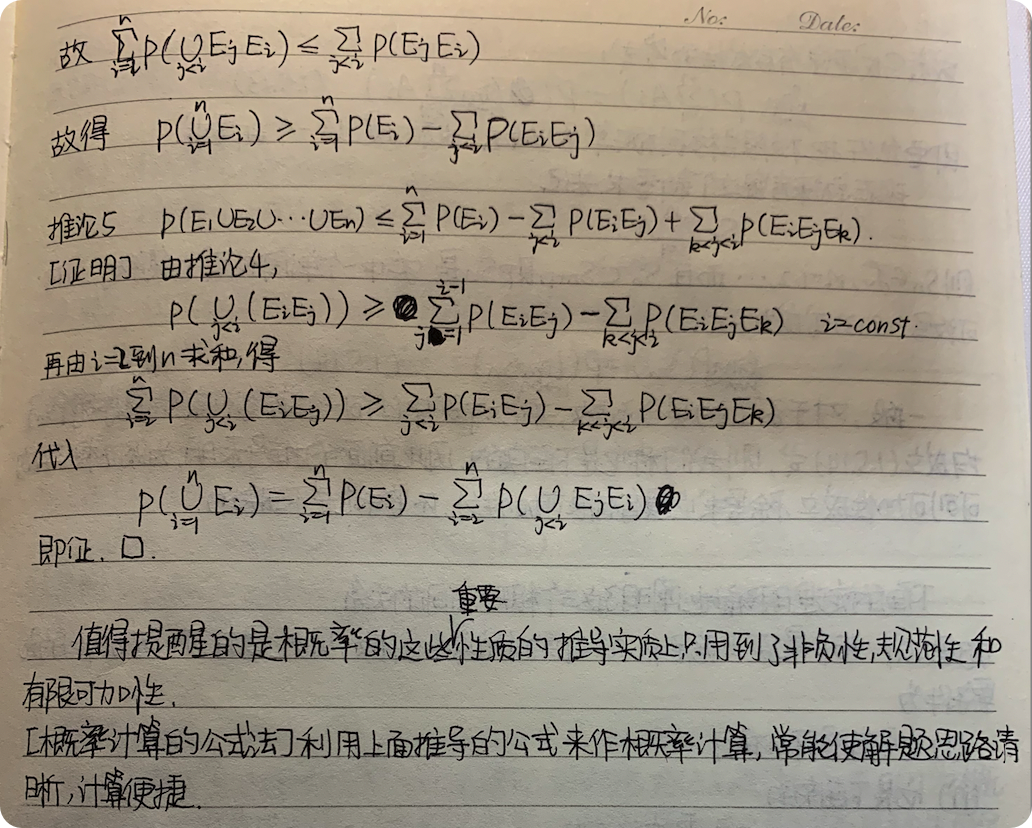 No: Date:
故 $\sum_{i=2}^{n} P(\bigcup_{j<i} E_j E_i) \leq \sum_{j<i} P(E_j E_i)$
故得 $P(\bigcup_{i=1}^{n} E_i) \geq \sum_{i=1}^{n} P(E_i) - \sum_{j<i} P(E_i E_j)$
推论5 $P(E_1 \cup E_2 \cup \cdots \cup E_n) \leq \sum_{i=1}^{n} P(E_i) - \sum_{j<i} P(E_i E_j) + \sum_{k<j<i} P(E_i E_j E_k).$
[证明] 由推论4,
$P(\bigcup_{j<i} (E_i E_j)) \geq \sum_{j=1}^{i-1} P(E_i E_j) - \sum_{k<j<i} P(E_i E_j E_k)$ i=const.
再由i=2到n求和,得
$\sum_{i=2}^{n} P(\bigcup_{j<i} (E_i E_j)) \geq \sum_{j<i} P(E_i E_j) - \sum_{k<j<i} P(E_i E_j E_k)$
代入
$P(\bigcup_{i=1}^{n} E_i) = \sum_{i=1}^{n} P(E_i) - \sum_{i=2}^{n} P(\bigcup_{j<i} E_j E_i)$
即证. □.
值得提醒的是概率的这些重要性质的推导实质上只用到了非负性,规范性和
有限可加性.
[概率计算的公式法]利用上面推导的公式来作概率计算,常能使解题思路清
晰,计算便捷.